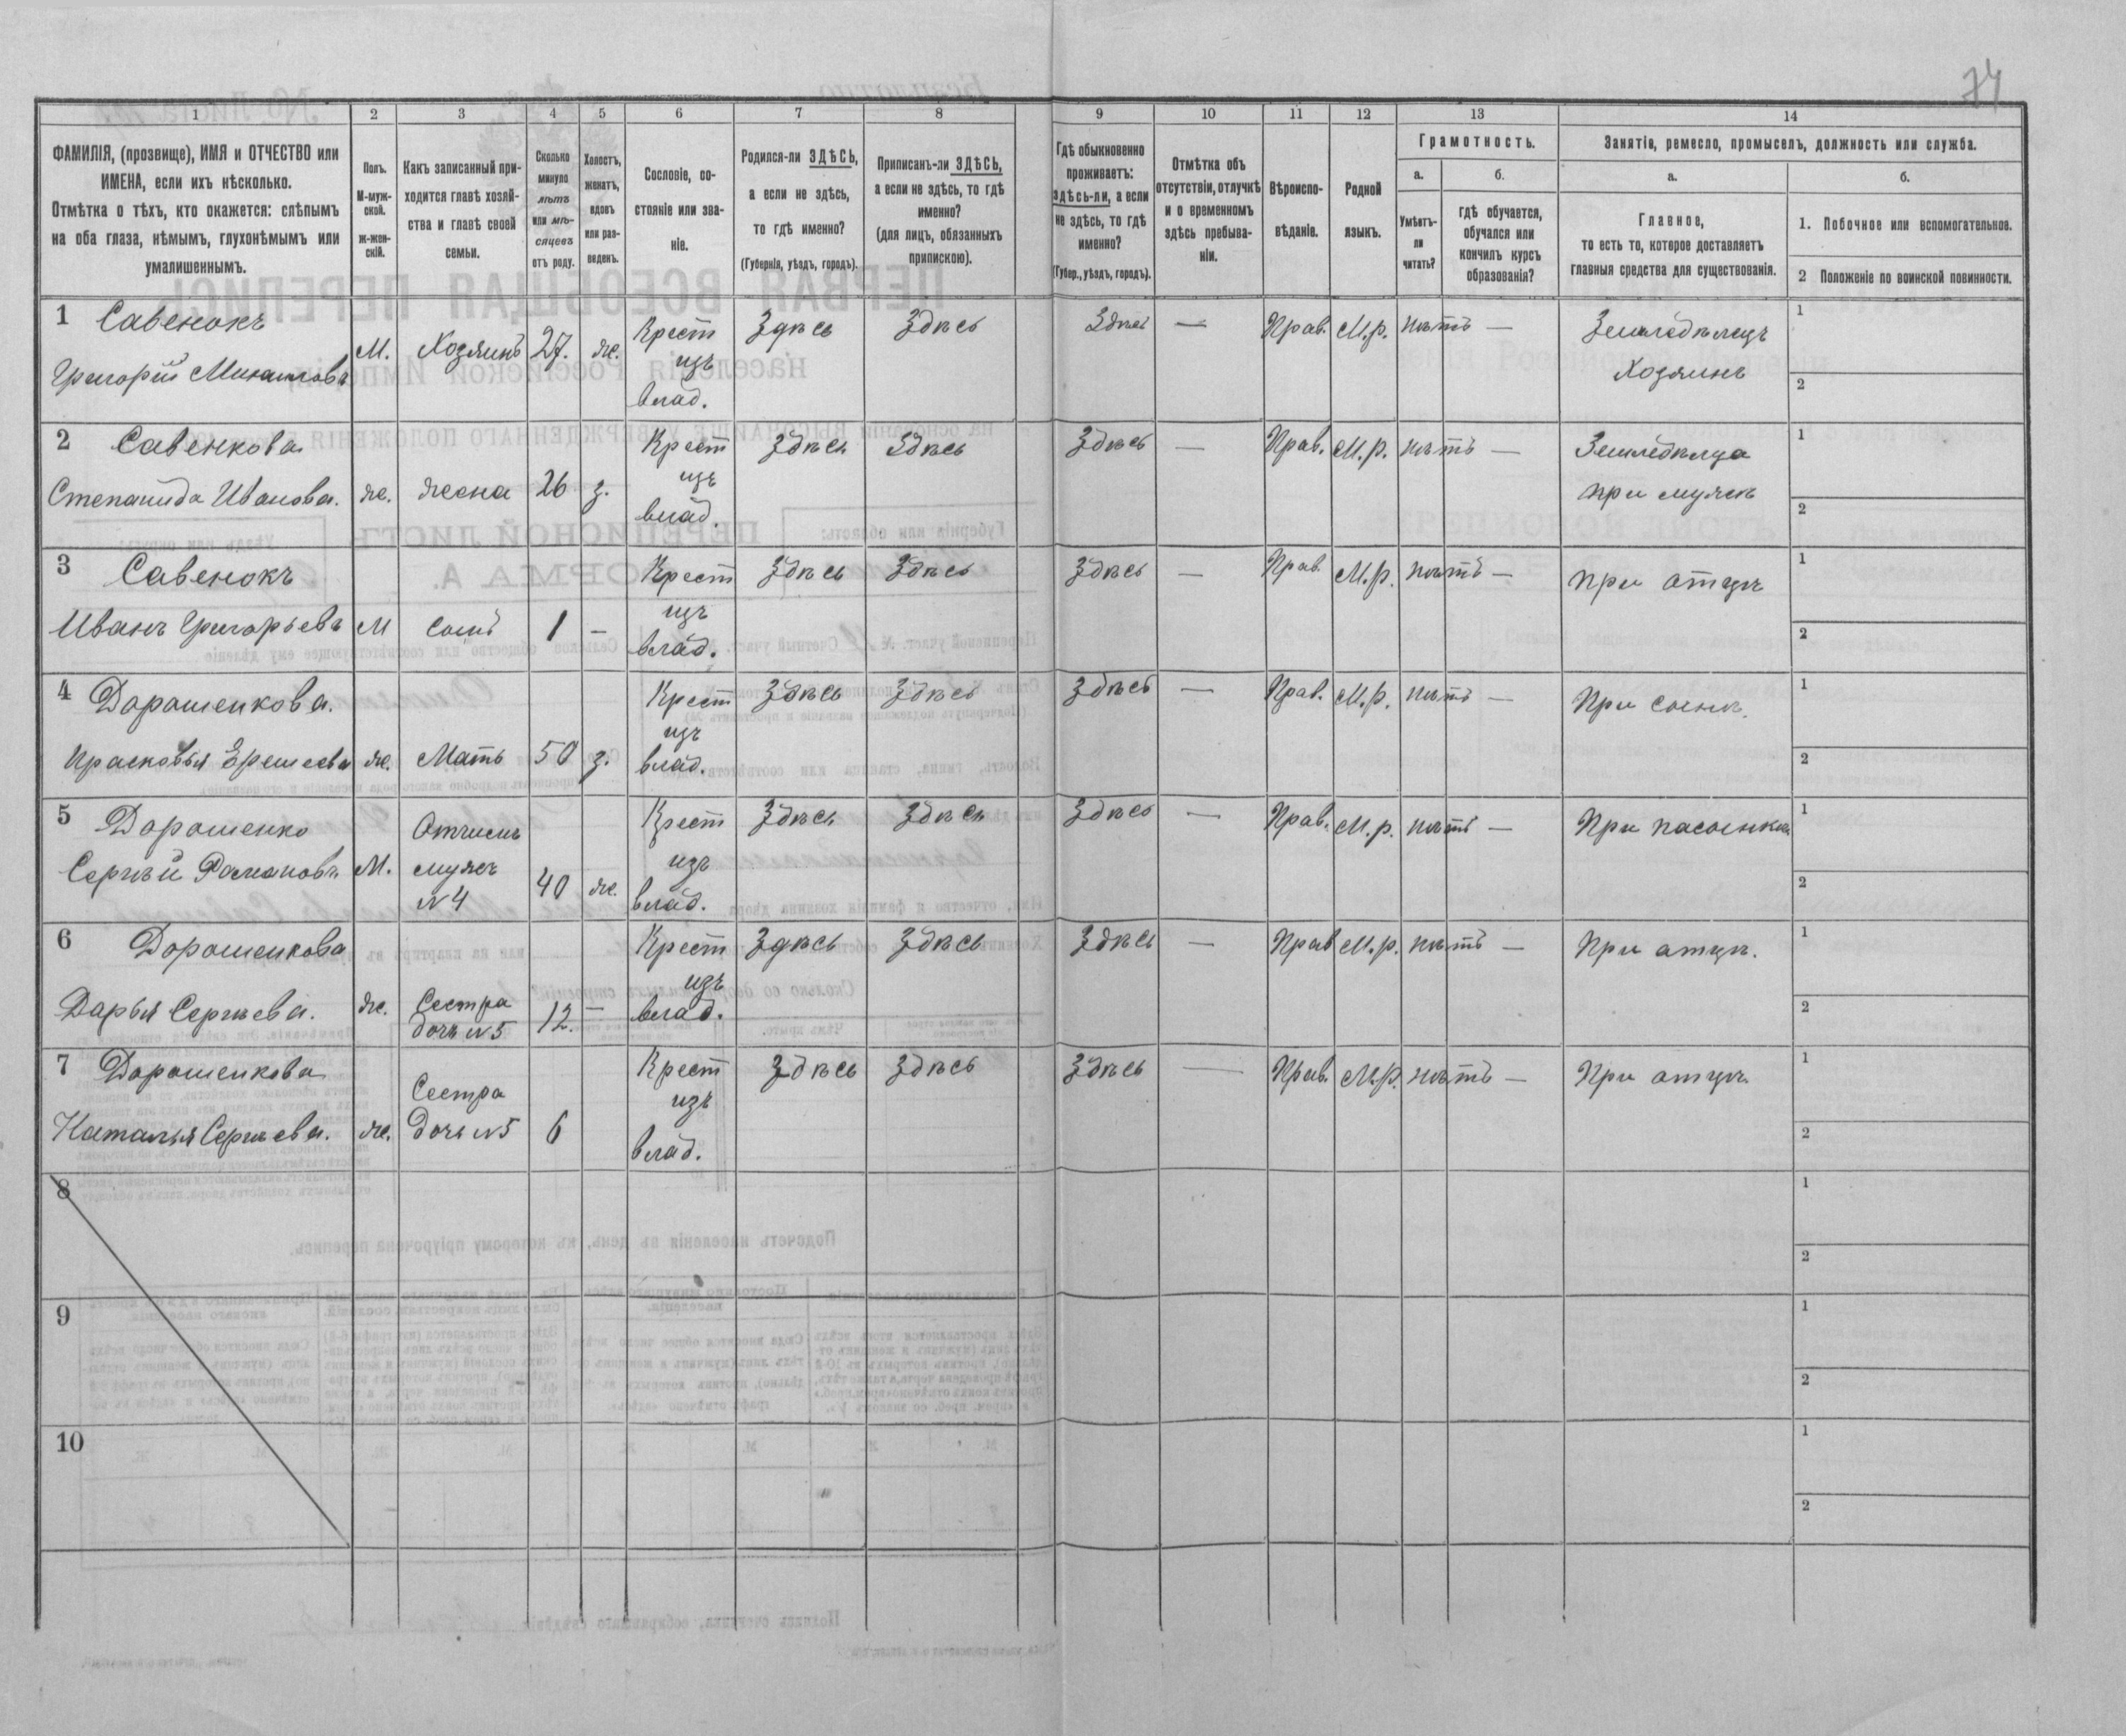 74
1 2 3 4 5 6 7 8 9 10 11 12 13 14
ФАМИЛІЯ, (прозвище), ИМЯ и ОТЧЕСТВО или
ИМЕНА, если ихъ нѣсколько.
Отмѣтка о тѣхъ, кто окажется: слѣпымъ
на оба глаза, нѣмымъ, глухонѣмымъ или
умалишеннымъ.
Полъ.
М-муж-
ской.
ж-жен-
скій.
Какъ записанный при-
ходится главѣ хозяй-
ства и главѣ своей
семьи.
Сколько
минуло
лѣтъ
или мѣ-
сяцевъ
отъ роду.
Холостъ,
женатъ,
вдовъ
или раз-
веденъ.
Сословіе, со-
стояніе или зва-
ніе.
Родился-ли ЗДѢСЬ,
а если не здѣсь,
то гдѣ именно?
(Губернія, уѣздъ, городъ).
Приписанъ-ли ЗДѢСЬ,
а если не здѣсь, то гдѣ
именно?
(для лицъ, обязанныхъ
припискою).
Гдѣ обыкновенно
проживаетъ:
здѣсь-ли, а если
не здѣсь, то гдѣ
именно?
(Губер., уѣздъ, городъ).
Отмѣтка объ
отсутствіи, отлучкѣ
и о временномъ
здѣсь пребыва-
ніи.
Вѣроиспо-
вѣданіе.
Родной
языкъ.
Грамотность.
а.
Умѣетъ-
ли
читать?
б.
гдѣ обучается,
обучался или
кончилъ курсъ
образованія?
Занятіе, ремесло, промыселъ, должность или служба.
а.
Главное,
то есть то, которое доставляетъ
главныя средства для существованія.
б.
1. Побочное или вспомогательное.
2 Положеніе по воинской повинности.
1 Савенокъ
Григорій Михаиловъ
М. Хозяинъ 27. ж.
Крест
изъ
влад.
Здѣсь Здѣсь Здѣсь — Прав. М.р. нѣтъ —
Земледѣлецъ
Хозяинъ
1
2
2 Савенкова
Степанида Иванова. ж. жена 26 з.
Крест
изъ
влад.
Здѣсь Здѣсь Здѣсь — Прав. М.р. нѣтъ —
Земледѣлца
при мужѣ
1
2
3 Савенокъ
Иванъ Григорьевъ М сынъ 1 —
Крест
изъ
влад.
Здѣсь Здѣсь Здѣсь — Прав. М.р. нѣтъ —
при отцѣ
1
2
4 Дорошенкова.
Прасковья Ереметева ж. Мать 50 з.
Крест
изъ
влад.
Здѣсь Здѣсь Здѣсь — Прав. М.р. нѣтъ —
При сынѣ.
1
2
5 Дорошенко
Сергѣй Романовъ М.
Отчимъ
мужъ
№4
40 ж.
Крест
изъ
влад.
Здѣсь Здѣсь Здѣсь — Прав. М.р. нѣтъ —
При пасынкѣ
1
2
6 Дорошенкова
Дарья Сергѣева. ж.
Сестра
дочь №5
12. —
Крест
изъ
влад.
Здѣсь Здѣсь Здѣсь — Прав М.р. нѣтъ —
При отцѣ.
1
2
7 Дорошенкова
Наталья Сергѣева. ж.
Сестра
дочь №5
6
Крест
изъ
влад.
Здѣсь Здѣсь Здѣсь — Прав. М.р. нѣтъ —
При отцѣ.
1
2
8
1
2
9
1
2
10
1
2